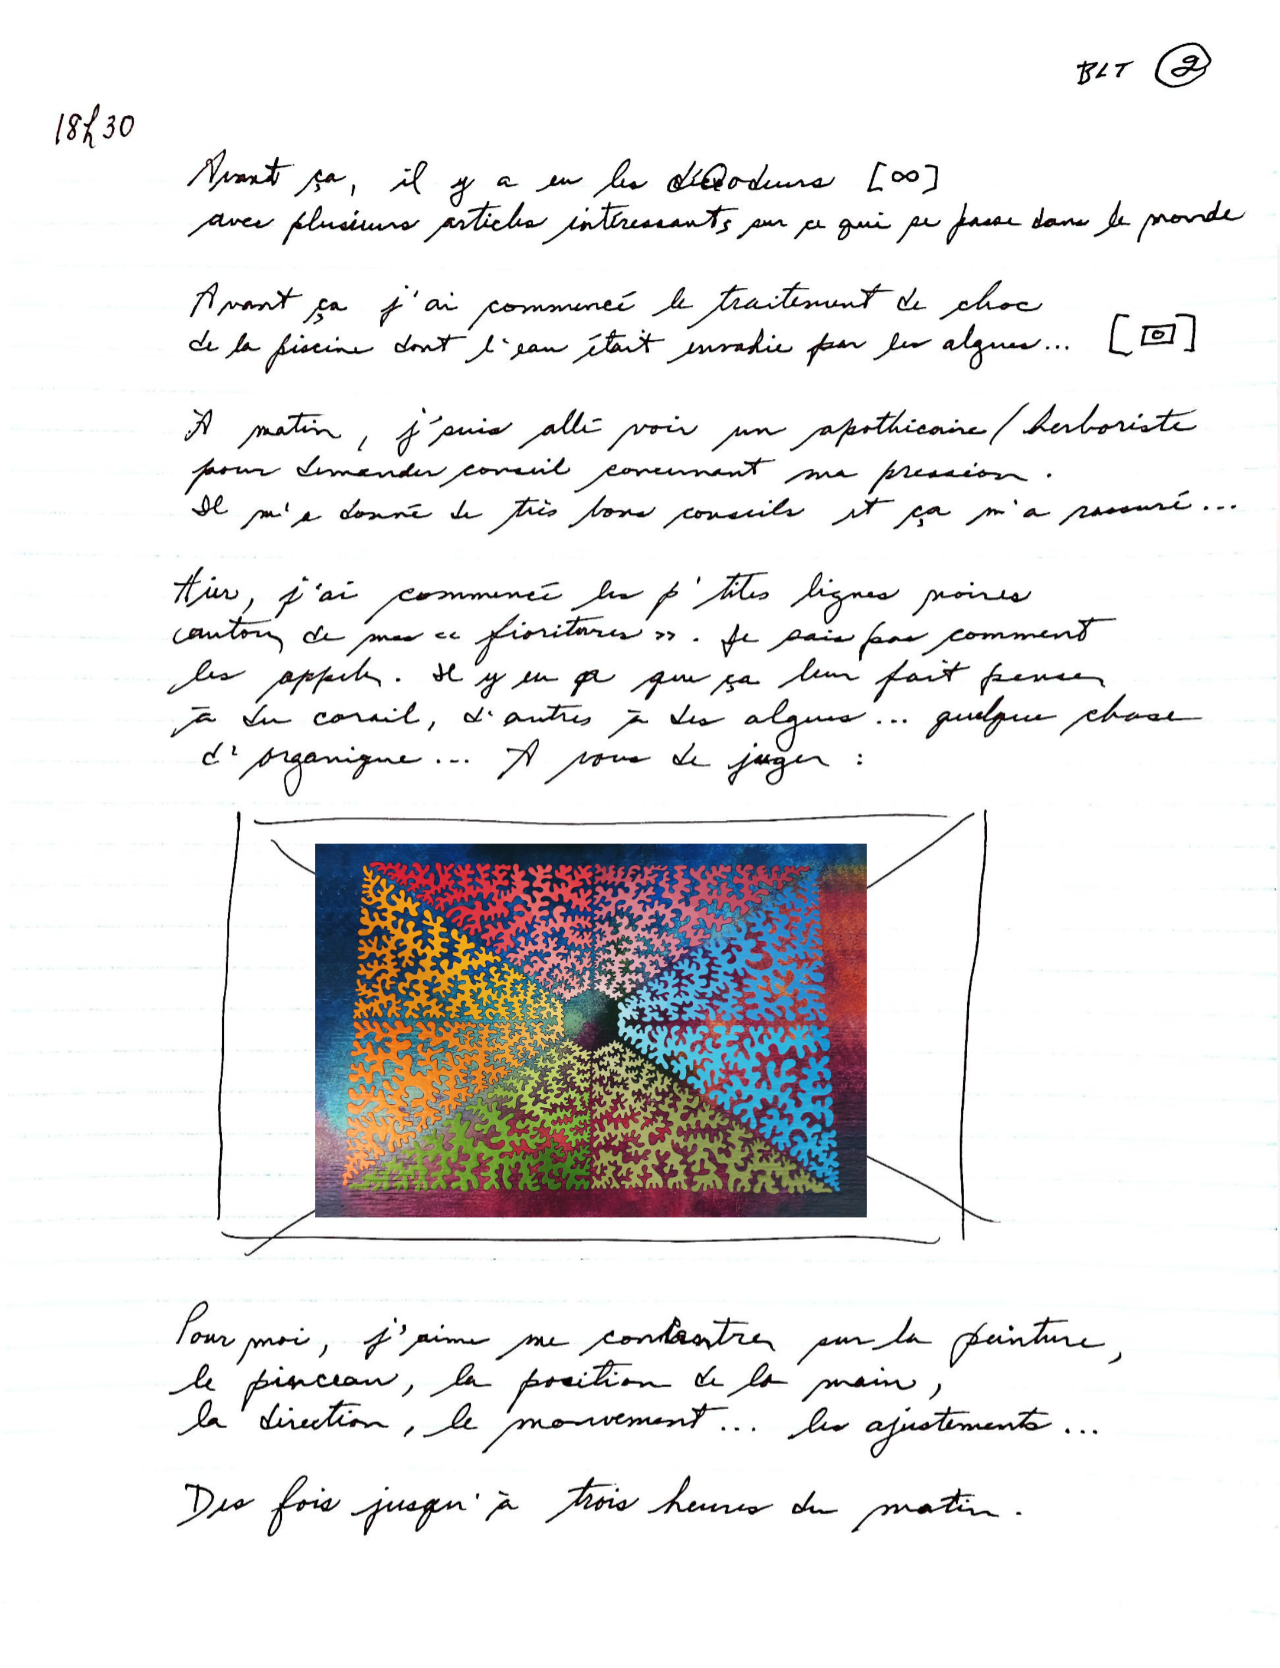 BLT ②
18h30
Avant ça, il y a eu les décodeurs [∞]
avec plusieurs articles intéressants sur ce qui se passe dans le monde
Avant ça j'ai commencé le traitement de choc
de la piscine dont l'eau était envahie par les algues... [ ]
À matin, j'suis allé voir un apothicaire / herboriste
pour demander conseil concernant ma pression.
Il m'a donné de très bons conseils et ça m'a rassuré...
Hier, j'ai commencé les p'tites lignes noires
autour de mes « fioritures ». Je sais pas comment
les appeler. Il y en a que ça leur fait penser
à du corail, d'autres à des algues... quelque chose
d'organique... A vous de juger :
Pour moi, j'aime me concentrer sur la peinture,
le pinceau, la position de la main,
la direction, le mouvement... les ajustements...
Des fois jusqu'à trois heures du matin.